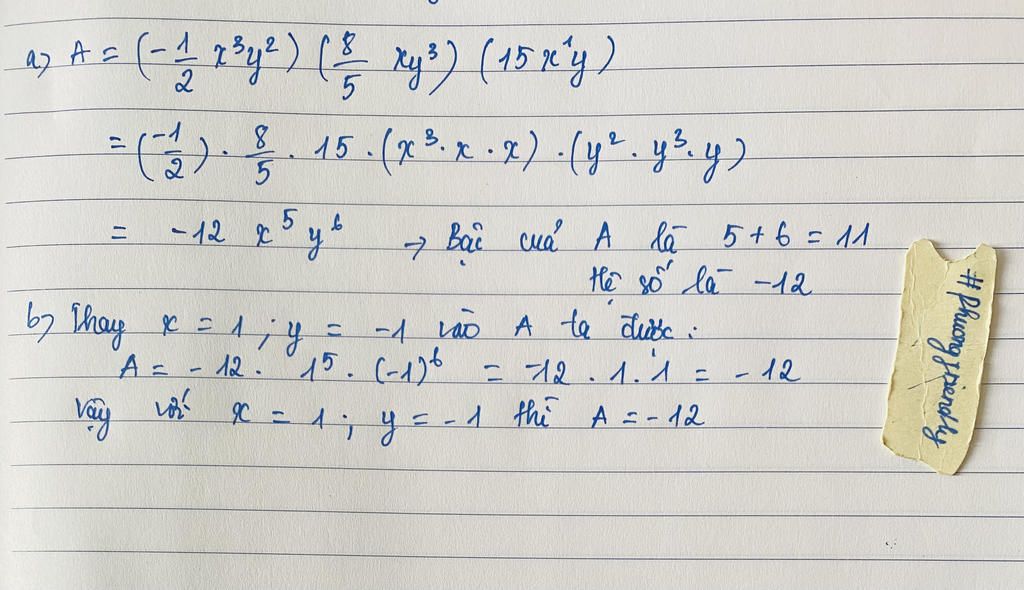 a) A = (-1/2 x³y²) (8/5 xy³) (15x¹y)
= (-1/2) . 8/5 . 15 . (x³. x . x) . (y² . y³. y)
= -12 x⁵ y⁶ → Bậc của A là 5 + 6 = 11
Hệ số là -12
b) Thay x = 1 ; y = -1 vào A ta được :
A = - 12 . 1⁵ . (-1)⁶ = -12 . 1 . 1 = - 12
Vậy với x = 1 ; y = - 1 thì A = - 12
#phuongfriendly